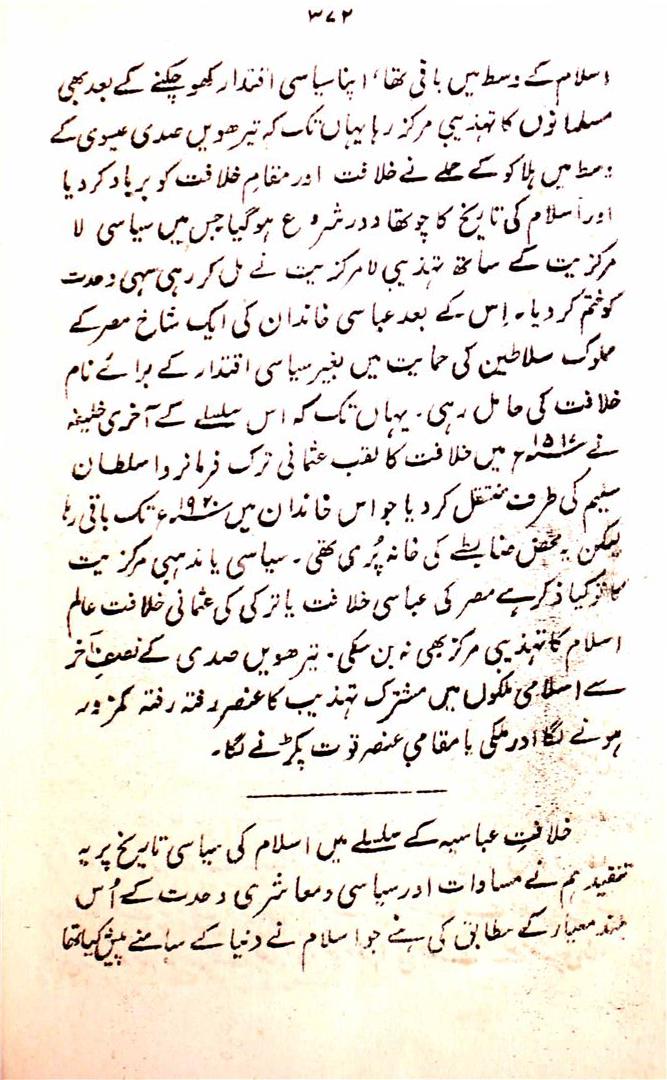 ۳۷۲
اسلام کے وسط میں باقی تھا، اپنا سیاسی اقتدار کھو چکنے کے بعد بھی
مسلمانوں کا تہذیبی مرکز رہا یہاں تک کہ تیرھویں صدی عیسوی کے
وسط میں ہلاکو کے حملے نے خلافت اور مقامِ خلافت کو برباد کر دیا
اور اسلام کی تاریخ کا چوتھا دور شروع ہو گیا جس میں سیاسی لا
مرکزیت کے ساتھ تہذیبی لامرکزیت نے مل کر رہی سہی وحدت
کو ختم کر دیا۔ اِس کے بعد عباسی خاندان کی ایک شاخ مصر کے
مملوک سلاطین کی حمایت میں بغیر سیاسی اقتدار کے برائے نام
خلافت کی حامل رہی۔ یہاں تک کہ اس سلسلے کے آخری خلیفہ
نے ۱۵۱۷ء میں خلافت کا لقب عثمانی ترک فرمانروا سلطان
سلیم کی طرف منتقل کر دیا جو اس خاندان میں ۱۹۲۰ء تک باقی رہا
لیکن یہ محض ضابطے کی خانہ پُری تھی۔ سیاسی یا مذہبی مرکزیت
کا تو کیا ذکر ہے مصر کی عباسی خلافت یا ترکی کی عثمانی خلافت عالم
اسلام کا تہذیبی مرکز بھی نہ بن سکی۔ تیرھویں صدی کے نصف آخر
سے اسلامی ملکوں میں مشترک تہذیب کا عنصر رفتہ رفتہ کمزور
ہونے لگا اور ملکی یا مقامی عنصر قوت پکڑنے لگا۔
خلافتِ عباسیہ کے سلسلے میں اسلام کی سیاسی تاریخ پر یہ
تنقید ہم نے مساوات اور سیاسی و معاشری وحدت کے اُس
بلند معیار کے مطابق کی ہے جو اسلام نے دنیا کے سامنے پیش کیا تھا